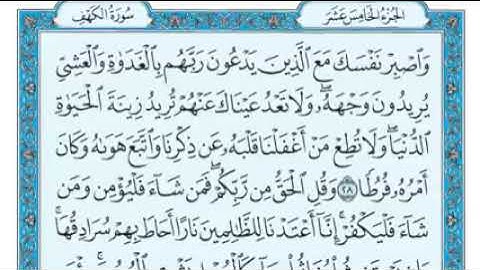 سُورَةُ الكَهْفِ
الجُزْءُ الخَامِسَ عَشَرَ
وَٱصْبِرْ نَفْسَكَ مَعَ ٱلَّذِينَ يَدْعُونَ رَبَّهُم بِٱلْغَدَوٰةِ وَٱلْعَشِيِّ
يُرِيدُونَ وَجْهَهُۥ ۖ وَلَا تَعْدُ عَيْنَاكَ عَنْهُمْ تُرِيدُ زِينَةَ ٱلْحَيَوٰةِ
ٱلدُّنْيَا ۖ وَلَا تُطِعْ مَنْ أَغْفَلْنَا قَلْبَهُۥ عَن ذِكْرِنَا وَٱتَّبَعَ هَوَىٰهُ وَكَانَ
أَمْرُهُۥ فُرُطًا ٢٨ وَقُلِ ٱلْحَقُّ مِن رَّبِّكُمْ ۖ فَمَن شَآءَ فَلْيُؤْمِن وَمَن
شَآءَ فَلْيَكْفُرْ ۚ إِنَّآ أَعْتَدْنَا لِلظَّٰلِمِينَ نَارًا أَحَاطَ بِهِمْ سُرَادِقُهَا ۚ